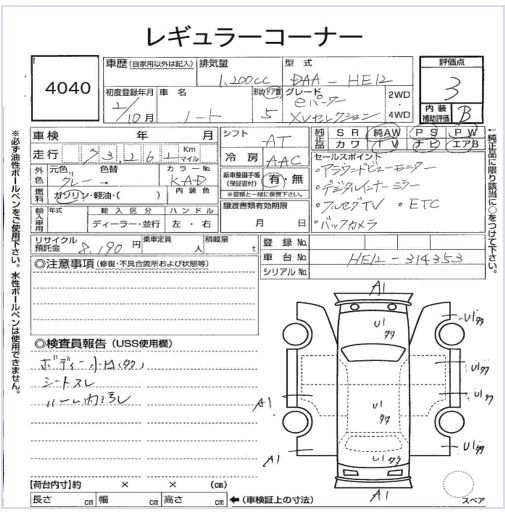 レギュラーコーナー
4040
車歴 (自家用以外は記入)
排気量
1,200cc
型式
DAA-HE12
評価点
3
内装
補助評価
B
初度登録年月
2/10月
車名
ノート
形状ドア数
5
グレード
eパワー
XVセレクション
2WD
4WD
車検 年 月
走行 93,261 Km マイル
シフト
AT
冷房
AAC
純正品
SR 純AW PS PW
カワ TV ナビ エアB
外装 元色 色替
グレー
カラーNo
KAD
内装色
燃料
ガソリン・軽油・( )
輸入車用
年式
輸入区分
ディーラー・並行
ハンドル
左・右
新車整備手帳
(保証書付)
有・無
※書類と一緒に保管下さい。
譲渡書類有効期限
月 日
セールスポイント
・アラウンドビューモニター
・デジタルインナーミラー
・フルセグTV ・ETC
・バックカメラ
リサイクル
預託金
8,190円
乗車定員
人
積載量
t
登録No.
車台No. HE12-314353
シリアルNo.
◎注意事項 (修復・不具合箇所および状態等)
◎検査員報告 (USS使用欄)
ボディー小キズ
シートスレ
A1
U1
U1
U1
A1
A1
A1
U1
U1
U1
U1
スペア
【荷台内寸】約 × × (cm)
長さ cm 幅 cm 高さ cm
←(車検証上の寸法)
※必ず油性ボールペンをご使用下さい。水性ボールペンは使用できません。
←純正品に限り該当に○をつけて下さい。